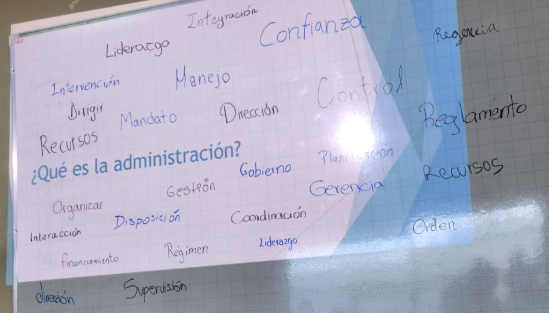 Integración
Liderazgo
Confianza
Regencia
Intervención
Manejo
Dirigir
Mandato
Dirección
Control
Reglamento
Recursos
¿Qué es la administración?
Gobierno
Planificación
Recursos
Organizar
Gestión
Gerencia
Interacción
Disposición
Coordinación
Orden
financiamiento
Régimen
Liderazgo
dirección
Supervisión